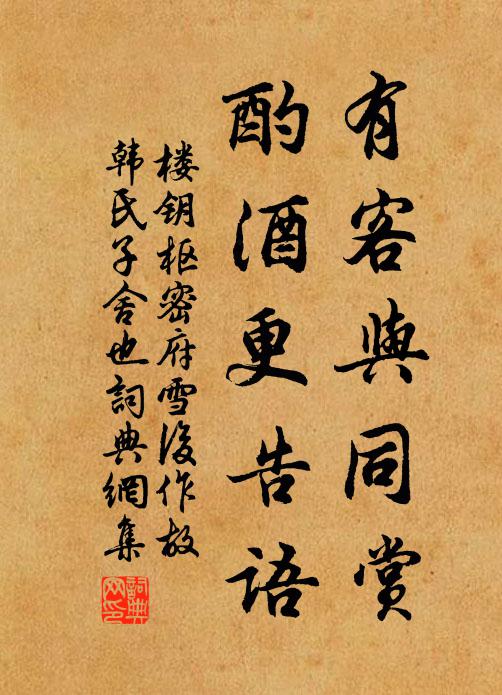 有客與同赏
酌酒更告语
楼钥枢密府雪後作故
韩氏子舍也詞典網集
詞典
网印